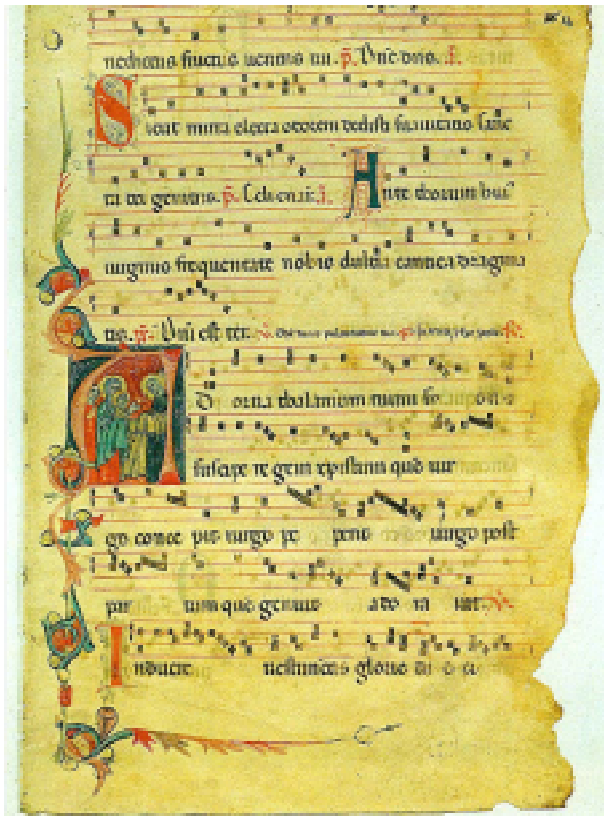 nedictus fructus uentris tui. p̄. Dñe dns.
Sicut mirra electa odorem dedisti suauitatis sanc
ta dei genitrix. p̄. Celi enar. Ante thorum huiꝰ
uirginis frequentate nobis dulcia cantica dragma
tis. Dñi est ter.
ADorna thalamum tuum
suscipe regem xpistum quē uir
go conce pit uirgo pe perit uirgo post
par tum quē genuit ado ra uit
Induere uestimentis glorie